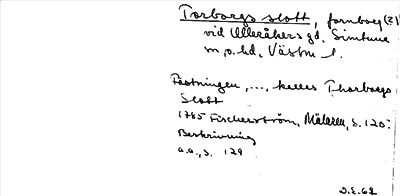 Torborgs slott, fornborg (?)
vid Ulleråkers gd. Simtuna
m.o.hd. Västm. l.
Fästningen, ..., kallas Thorborgs
Slott
1785 Fischerström, Mälaren, s. 120:
Beskrivning
a.a., s. 129
D.E. 62